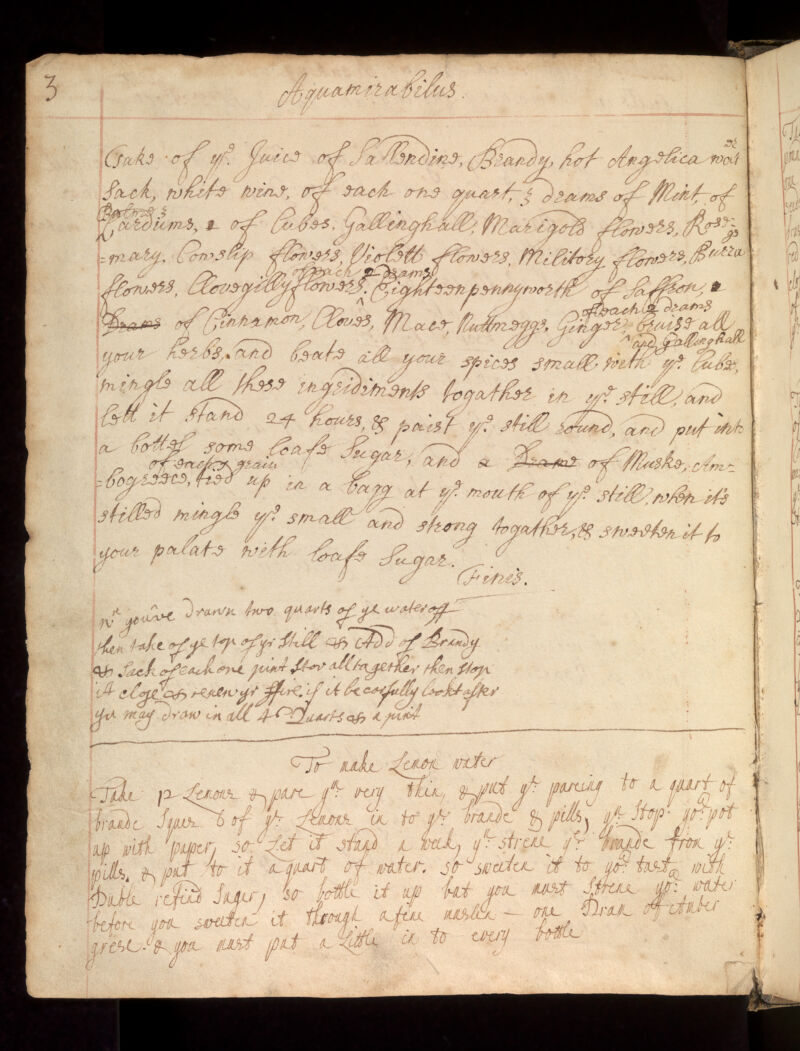 3
Aquamirabilus.
Take of yᵉ. Juice of Sallendine, Brandy, hot Angelica wat
er
Sack, white wine, of each one quart, 3 drams of Mint, of
Balme 3
Cardums, 2 of Cubes. Gallinghall, Marigold flowers, Rose-
=mary. Cowslip flowers, Violett flowers, Military flowers, Burra
gs
flowers, Clovegillyflowers. Eighteenpennyworth of Saffron, 2
of each 2 drams
Drams of Cinnamon, Cloves, Mace, Nuttmeggs, Ginger, bruise all
of each 2 drams
your herbs, and beate all your spices small with yᵉ. Cube,
and Gallinghall
mingle all these ingridiments togather in yᵉ. still, and
lett it stand 24 hours, & paist yᵉ. still round, and put into
a bottel some loafe Sugar, and a Drame of Muske, Am=
of each 2 grain
=bogreece, tied up in a bagg at yᵉ. mouth of yᵉ. still, when it's
stilled mingle yᵉ. small and strong togather, & sweeten it to
your palate with loafe Sugar.
Finis.
wⁿ you've drawn two quarts of ye water off
then take of ye top of yr still & Add of Brandy
& Sack of each one pint stor all together then stop
it close & renew yr ffire. if it be carfully lookt after
yu may draw in all 4 Quarts & a pint
To make Lemon water
Take 12 Lemons & pare yᵐ very thin, & put yᵉ pareing to a quart of
brande Sques 6 of yᵉ Lemons in to yᵉ brande & pills, yⁿ stop yoʳ pot
up with paper, so Let it stand a week, yⁿ strene yᵉ brande from yᵉ
pills. & put to it a quart of water. so sweten it to yoʳ tast with
Duble refind Suger, so bottle it up but you must Strene yoʳ water
before you sweeten it through a fine muslin – one Dram of Amber
grese. & you must put a Little in to every bottle